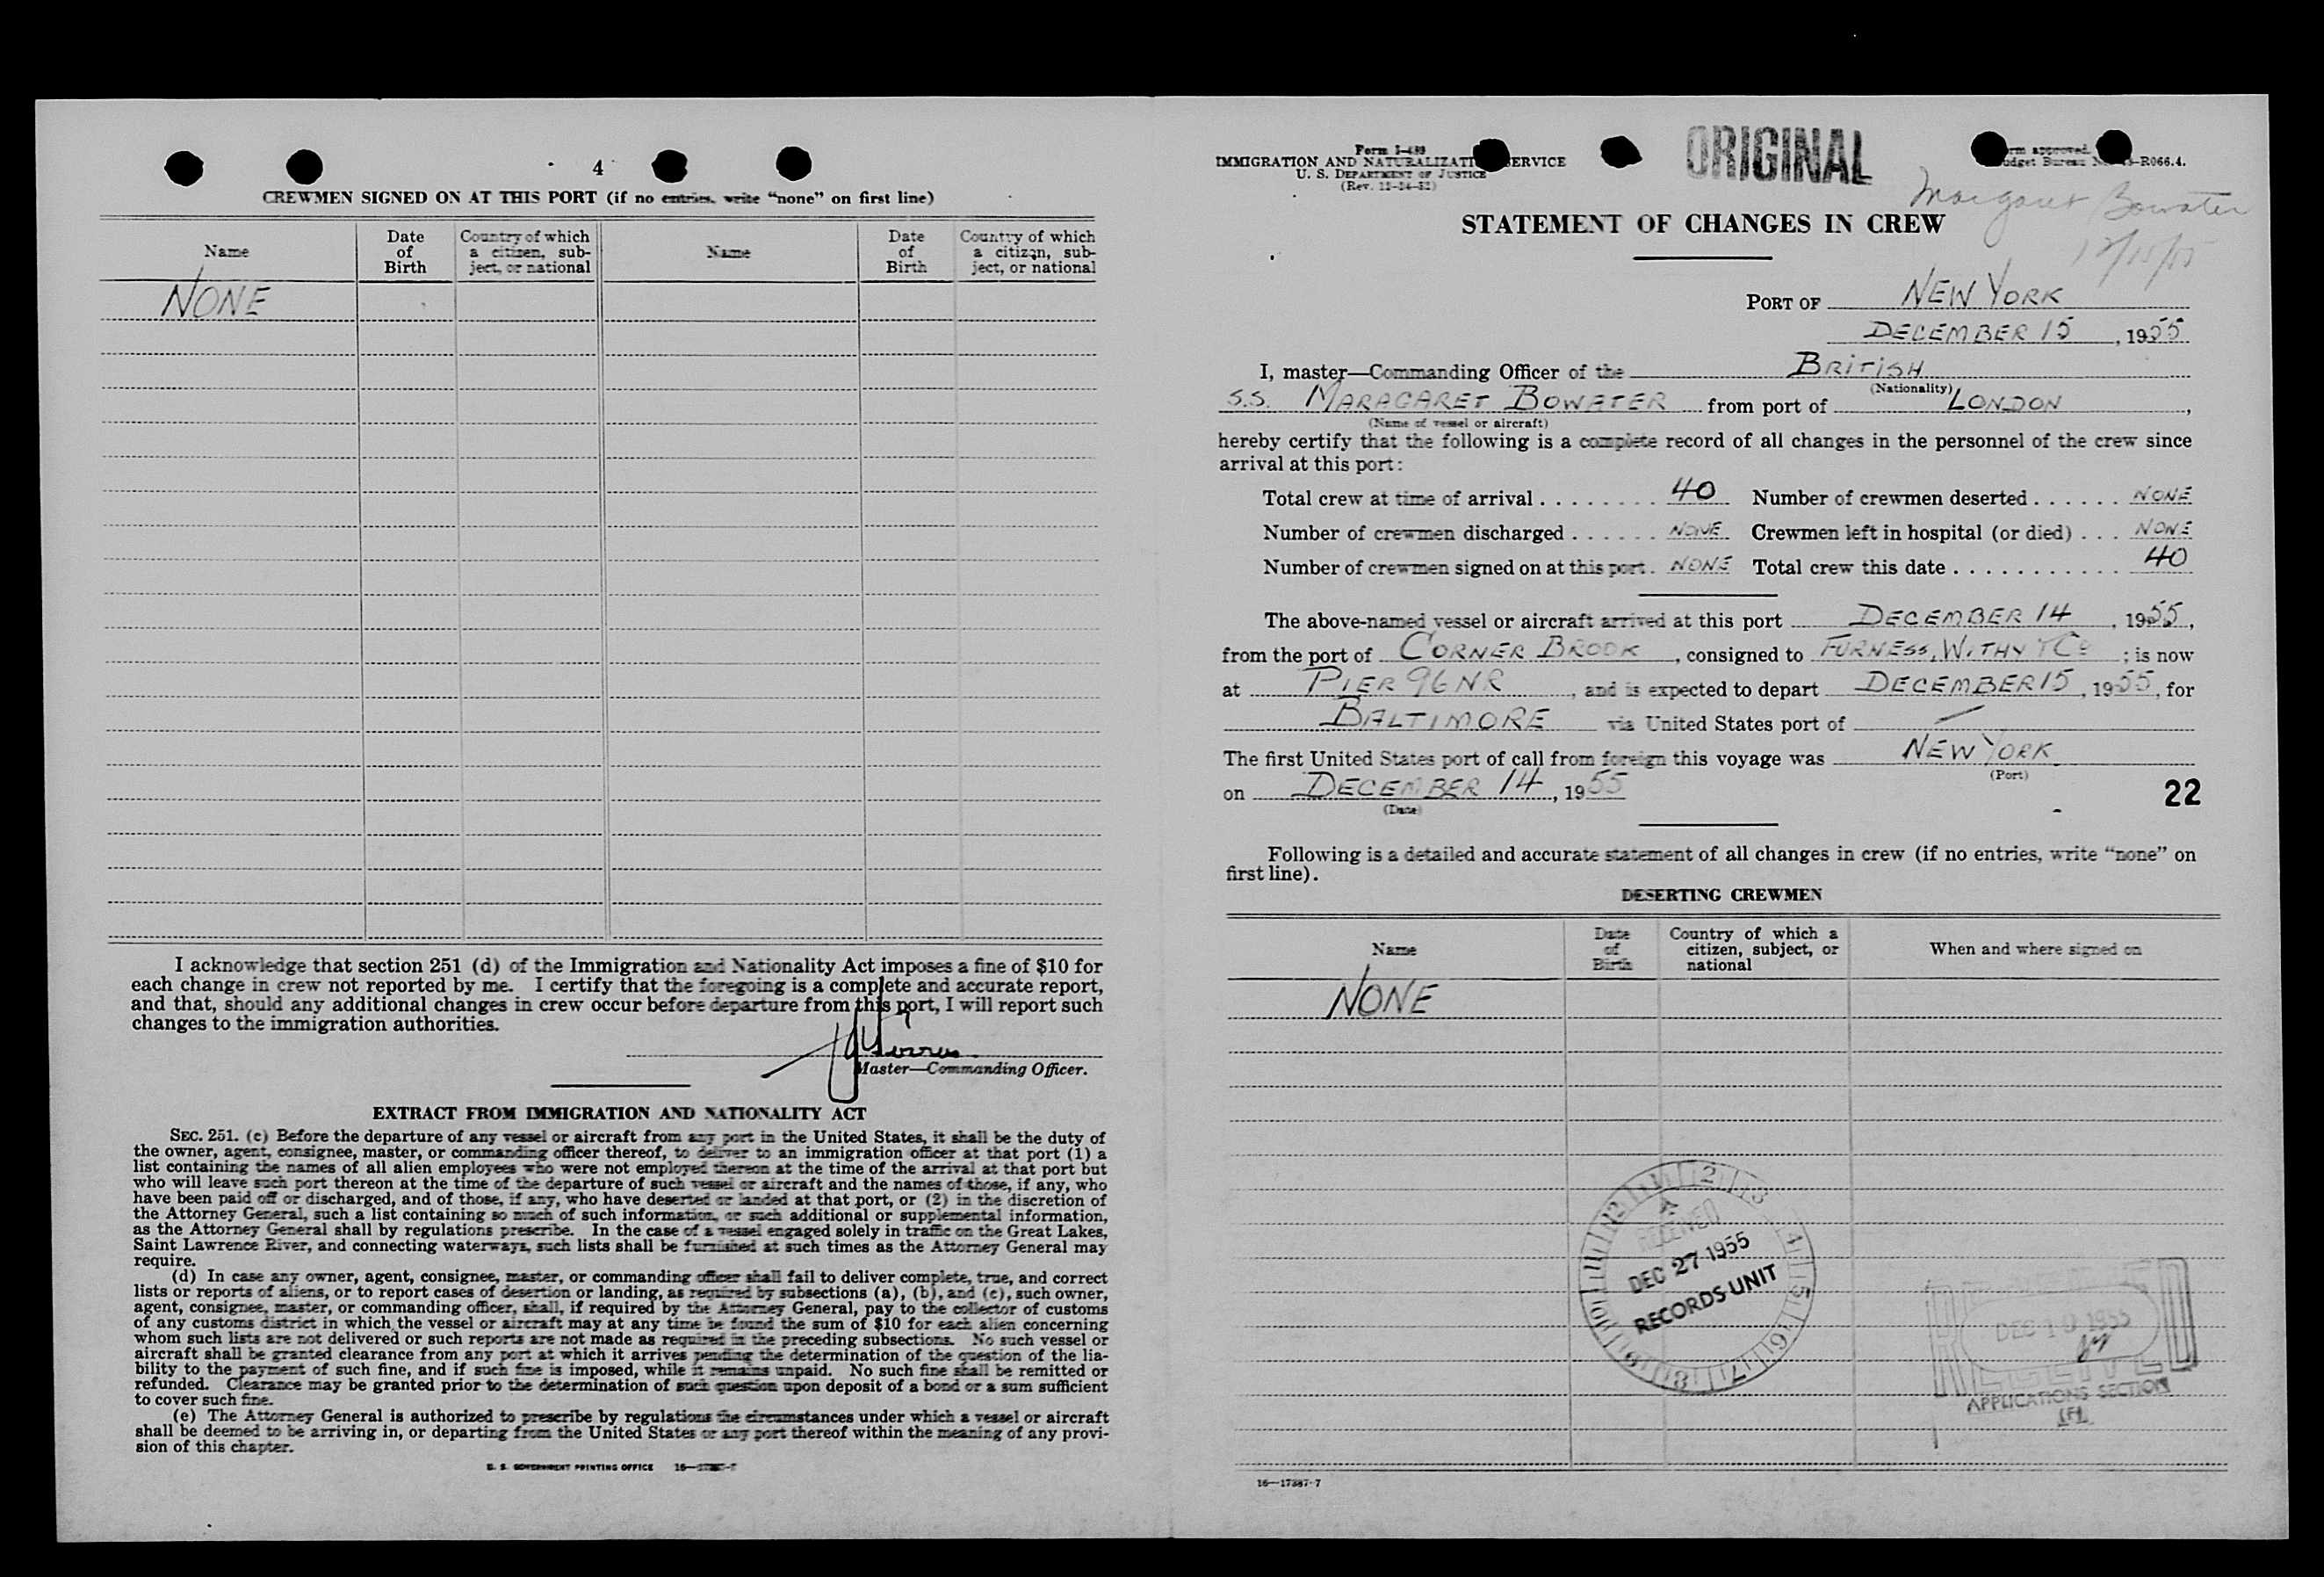 4
CREWMEN SIGNED ON AT THIS PORT (if no entries, write “none” on first line)
Name
Date of Birth
Country of which a citizen, subject, or national
Name
Date of Birth
Country of which a citizen, subject, or national
NONE
I acknowledge that section 251 (d) of the Immigration and Nationality Act imposes a fine of $10 for
each change in crew not reported by me. I certify that the foregoing is a complete and accurate report,
and that, should any additional changes in crew occur before departure from this port, I will report such
changes to the immigration authorities.
Master—Commanding Officer.
EXTRACT FROM IMMIGRATION AND NATIONALITY ACT
SEC. 251. (c) Before the departure of any vessel or aircraft from any port in the United States, it shall be the duty of
the owner, agent, consignee, master, or commanding officer thereof, to deliver to an immigration officer at that port (1) a
list containing the names of all alien employees who were not employed thereon at the time of the arrival at that port but
who will leave such port thereon at the time of the departure of such vessel or aircraft and the names of those, if any, who
have been paid off or discharged, and of those, if any, who have deserted or landed at that port, or (2) in the discretion of
the Attorney General, such a list containing so much of such information, or such additional or supplemental information,
as the Attorney General shall by regulations prescribe. In the case of a vessel engaged solely in traffic on the Great Lakes,
Saint Lawrence River, and connecting waterways, such lists shall be furnished at such times as the Attorney General may
require.
(d) In case any owner, agent, consignee, master, or commanding officer shall fail to deliver complete, true, and correct
lists or reports of aliens, or to report cases of desertion or landing, as required by subsections (a), (b), and (c), such owner,
agent, consignee, master, or commanding officer, shall, if required by the Attorney General, pay to the collector of customs
of any customs district in which the vessel or aircraft may at any time be found the sum of $10 for each alien concerning
whom such lists are not delivered or such reports are not made as required in the preceding subsections. No such vessel or
aircraft shall be granted clearance from any port at which it arrives pending the determination of the question of the lia-
bility to the payment of such fine, and if such fine is imposed, while it remains unpaid. No such fine shall be remitted or
refunded. Clearance may be granted prior to the determination of such question upon deposit of a bond or a sum sufficient
to cover such fine.
(e) The Attorney General is authorized to prescribe by regulations the circumstances under which a vessel or aircraft
shall be deemed to be arriving in, or departing from the United States or any port thereof within the meaning of any provi-
sion of this chapter.
U. S. GOVERNMENT PRINTING OFFICE
Form I-489
IMMIGRATION AND NATURALIZATI ERVICE
U. S. DEPARTMENT OF JUSTICE
(Rev. 12-24-52)
ORIGINAL
rm approved.
udget Bureau -R066.4.
Margaret Bowater
12/15/55
STATEMENT OF CHANGES IN CREW
PORT OF NEW YORK
DECEMBER 15, 1955
I, master—Commanding Officer of the BRITISH
(Nationality)
S.S. MARAGARET BOWATER from port of LONDON,
(Name of vessel or aircraft)
hereby certify that the following is a complete record of all changes in the personnel of the crew since
arrival at this port:
Total crew at time of arrival . . . . . . . . 40 Number of crewmen deserted . . . . . . NONE
Number of crewmen discharged . . . . . . NONE Crewmen left in hospital (or died) . . . NONE
Number of crewmen signed on at this port . NONE Total crew this date . . . . . . . . . . . . 40
The above-named vessel or aircraft arrived at this port DECEMBER 14, 1955,
from the port of CORNER BROOK, consigned to FURNESS, WITHY & Co; is now
at PIER 96 NR, and is expected to depart DECEMBER 15, 1955, for
BALTIMORE via United States port of —
The first United States port of call from foreign this voyage was NEW YORK
(Port)
on DECEMBER 14, 1955
(Date)
22
Following is a detailed and accurate statement of all changes in crew (if no entries, write “none” on
first line).
DESERTING CREWMEN
Name
Date of Birth
Country of which a citizen, subject, or national
When and where signed on
NONE
RECEIVED
DEC 27 1955
RECORDS UNIT
RECEIVED
1955
APPLICATIONS SECTION
16—17387-7